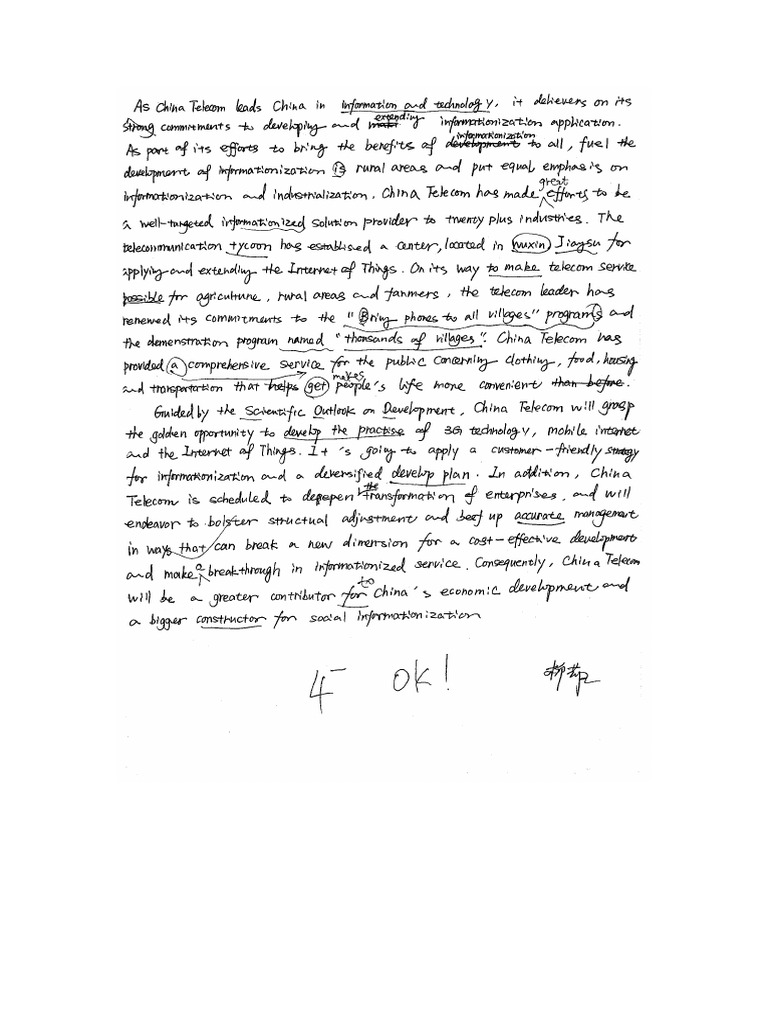 As China Telecom leads China in information and technology, it delievers on its
strong commitments to developing and extending informationization application.
As part of its efforts to bring the benefits of informationization to all, fuel the
development of informationization is rural areas and put equal emphasis on
informationization and industrialization. China Telecom has made great efforts to be
a well-targeted informationized solution provider to twenty plus industries. The
telecommunication tycoon has established a center, located in wuxin Jiangsu for
applying and extending the Internet of Things. On its way to make telecom service
possible for agriculture, rural areas and farmers, the telecom leader has
renewed its commitments to the "Bring phones to all villages" programs and
the demenstration program named "thonsands of villages". China Telecom has
provided a comprehensive service for the public concerning clothing, food, housing
and transportation that helps get makes people's life more convenient than before.
Guided by the Scientific Outlook on Development, China Telecom will grasp
the golden opportunity to develop the practise of 3G technology, mobile internet
and the Internet of Things. It's going to apply a customer-friendly strategy
for informationization and a deversified develop plan. In addition, China
Telecom is scheduled to depepen the transformation of enterprises, and will
endeavor to bolster structual adjustment and beef up accurate management
in ways that can break a new dimension for a cost-effective development
and make a breakthrough in informationized service. Consequently, China Telecom
will be a greater contributor for to China's economic development and
a bigger constructor for social informationization
4- OK!